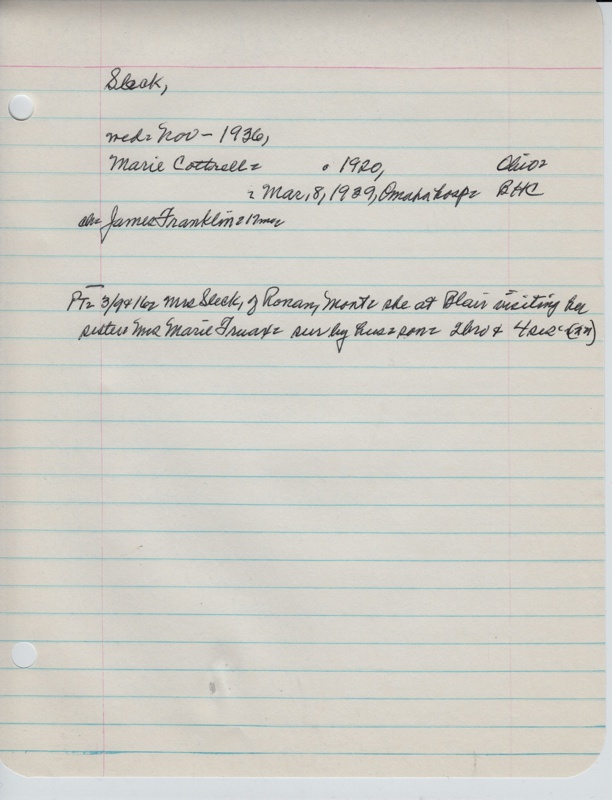 Sleck,
wed= Nov - 1936,
Marie Cottrell= ∘ 1920, Ohio=
= Mar, 8, 1939, Omaha hosp= BHC
ch= James Franklin= 17mo=
PT= 3/9&16= Mrs Sleck, of Ronan, Mont= she at Blair visiting her
sister= Mrs Marie Truax= sur by hus= son= 2bro & 4sis=